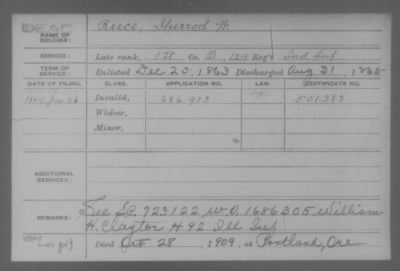 NAME OF SOLDIER: Reece, Sherrod W.
SERVICE: Late rank, Co. D, Reg't Ind. Inf.
TERM OF SERVICE: Enlisted Dec 20, 1863 Discharged Aug 31, 1865
DATE OF FILING. CLASS. APPLICATION NO. LAW. CERTIFICATE NO.
Invalid, 686.953 501.383
Widow,
Minor,
ADDITIONAL SERVICES:
REMARKS: See S.C. 723122 W.O. 1686305 William
H. Clayton H 92 Ill Inf
Died Oct 28, 1909, at Portland, Ore